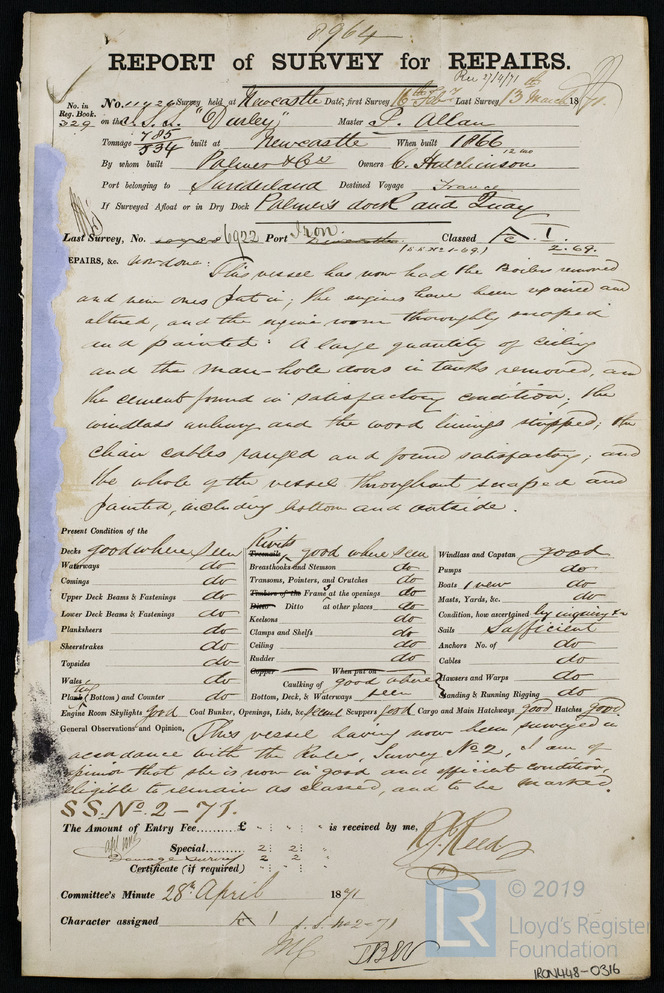 8964
REPORT of SURVEY for REPAIRS.
Rec 2/4/71
No. in Reg. Book. 329
No. 11926 Survey held at Newcastle Date, first Survey 16th Feby Last Survey 13th March 1871.
on the S.S. "Durley" Master P. Allan
Tonnage 785 / 534 built at Newcastle When built 1866 12 mo
By whom built Palmer & Co Owners C. Hutchinson
Port belonging to Sunderland Destined Voyage France
If Surveyed Afloat or in Dry Dock Palmers dock and Quay
Last Survey, No. 6922 Port Iron. Classed A 1 2.69.
(SSNo1-69)
EPAIRS, &c. now done: This vessel has now had the Boilers removed
and new ones put in; the engines have been repaired and
altered, and the engine room thoroughly scraped
and painted: A large quantity of ceiling
and the man-hole doors in tanks removed, and
the cement found in satisfactory condition; the
windlass unhung and the wood linings stripped; the
chain cables ranged and found satisfactory; and
the whole of the vessel throughout scraped and
painted, including bottom and outside.
Present Condition of the
Decks good where seen
Waterways do
Comings do
Upper Deck Beams & Fastenings do
Lower Deck Beams & Fastenings do
Planksheers do
Sheerstrakes do
Topsides do
Wales do
Plank (Bottom) and Counter do
Rivits
Treenails good where seen
Breasthooks and Stemson do
Transoms, Pointers, and Crutches do
Timbers of the Frames at the openings do
Ditto Ditto at other places do
Keelsons do
Clamps and Shelfs do
Ceiling do
Rudder do
Copper When put on
Caulking of Bottom, Deck, & Waterways good where seen
Windlass and Capstan good
Pumps do
Boats 1 new do
Masts, Yards, &c. do
Condition, how ascertained by inquiry &
Sails Sufficient
Anchors No. of do
Cables do
Hawsers and Warps do
Standing & Running Rigging do
Engine Room Skylights good Coal Bunker, Openings, Lids, &c. Scuppers good Cargo and Main Hatchways good Hatches good
General Observations and Opinion, This vessel having now been surveyed in
accordance with the Rules, Survey No 2, I am of
opinion that she is now in good and efficient condition,
eligible to remain as classed, and to be marked.
S.S. No. 2-71.
The Amount of Entry Fee.......... £ : : is received by me,
Special.......... 2 : 2 :
Damage Survey 2 2
Certificate (if required) : :
R. J. Reed
Committee's Minute 28th April 1871.
Character assigned A 1 s.s. No 2-71
© 2019
LR
Lloyd's Register
Foundation
IRON448-0316